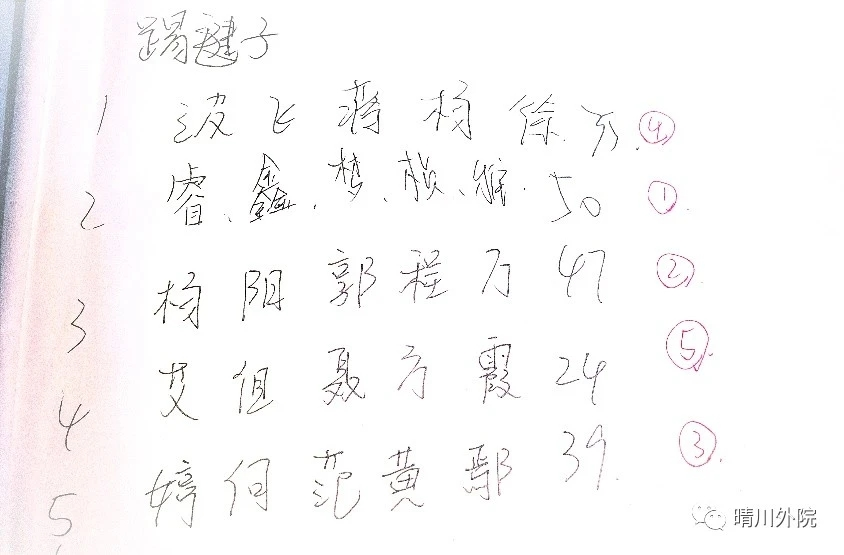 踢毽子
1 波 飞 蒋 杨 徐 35. ④
2 睿、鑫、梦、颜、雅. 50 ①.
3 杨 阳 郭 程 万 47 ②.
4 艾 但 聂 方 霞 24 ⑤.
5 婷 何 范 黄 鄢 39. ③.
晴川外院